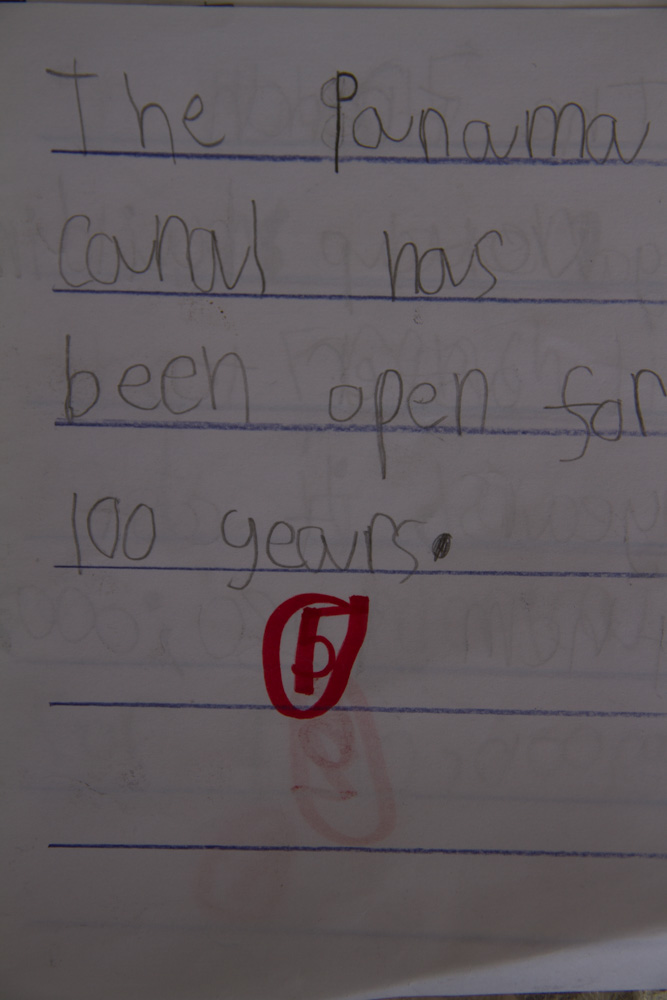 The Panama
canal has
been open for
100 years.
5